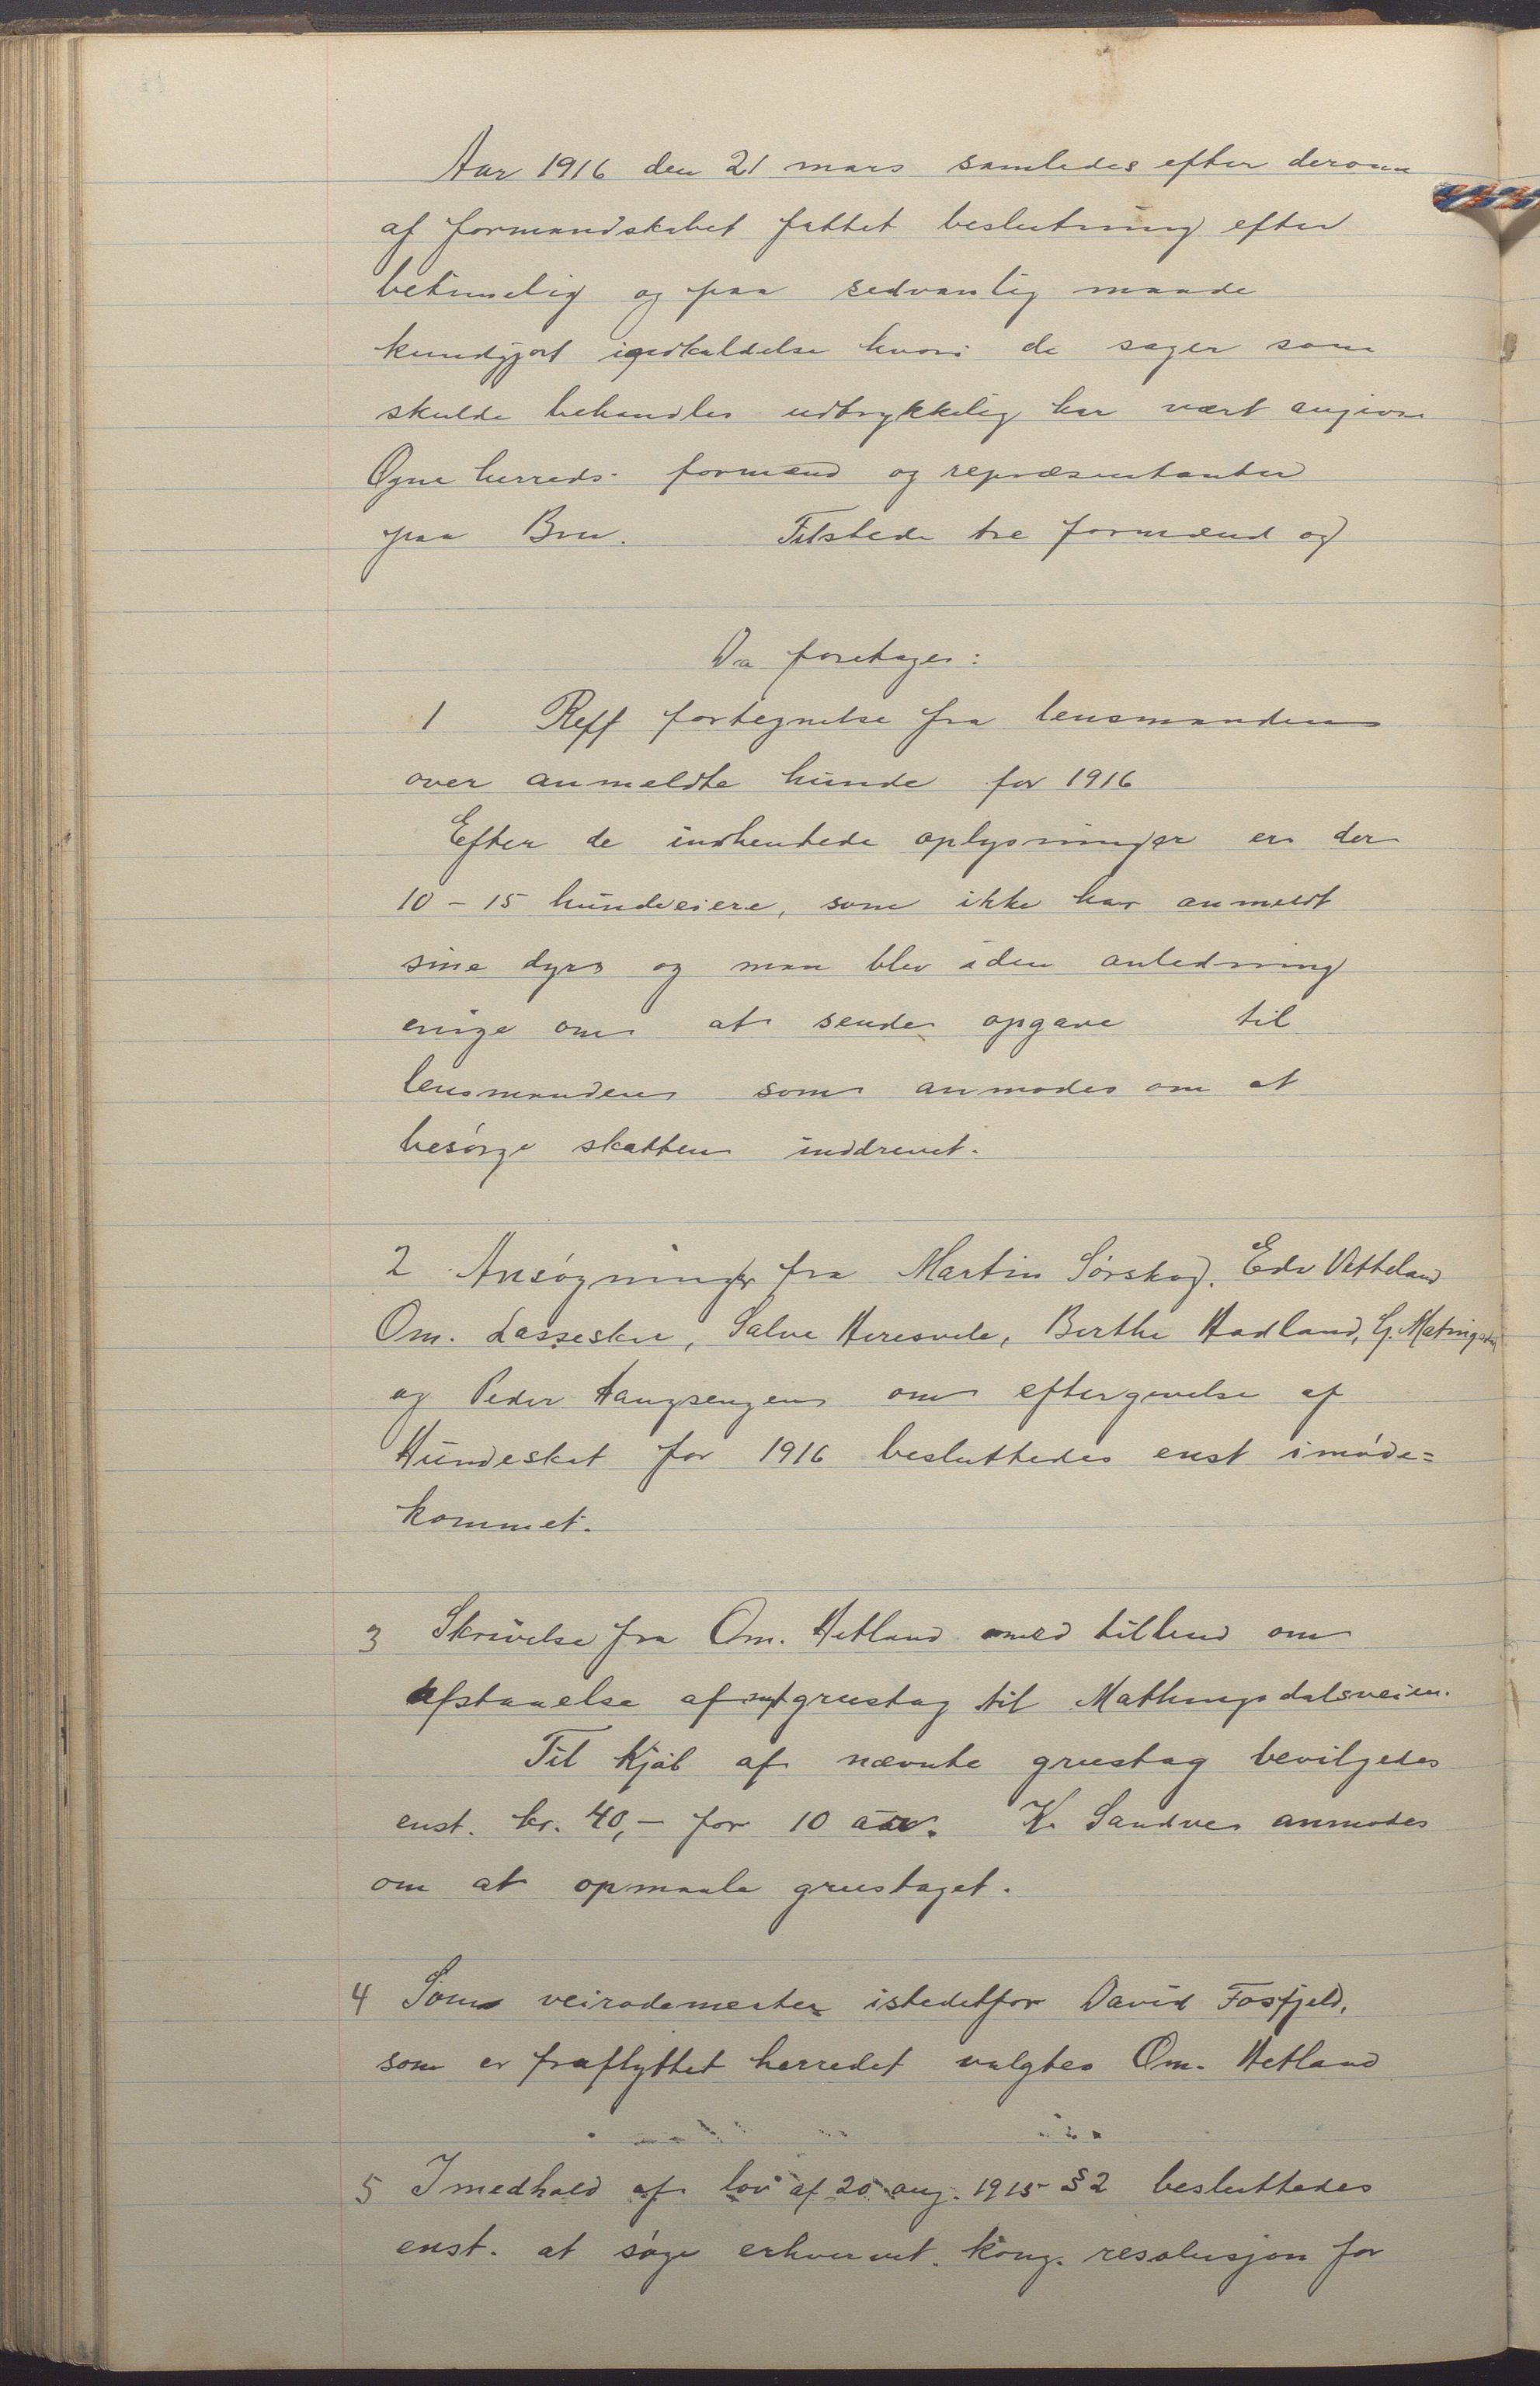 Aar 1916 den 21 mars samledes efter derom
af formandskabet fattet beslutning efter
betimelig og paa sedvanlig maade
kundgjort indkaldelse hvori de sager som
skulde behandles udtrykkelig har vært angivne
Ogne herreds formænd og repræsentanter
paa Bru. Tilstede tre formænd og
Da foretages:
1 Reff fortegnelse fra lensmanden
over anmeldte hunde for 1916
Efter de indhentede oplysninger er der
10 - 15 hundeeiere, som ikke har anmeldt
sine dyrs og man blev iden anledning
enige om at sende opgave til
lensmanden som anmodes om at
besørge skatten inddrevet.
2 Ansøgninger fra Martin Sørskog, Edv Vetteland
Om. Lasseskor, Salve Heresvele, Berthe Hadland, G. Matningsdal
og Peder Haugsengen om eftergivelse af
Hundeskat for 1916 besluttedes enst imøde=
kommet.
3 Skrivelse fra Om. Hetland med tilbud om
afstaaelse af grustag til Mathingsdalsveien.
Til kjøb af nævnte grustag bevilgedes
enst. kr. 40,- for 10 aar. K. Sandve anmodes
om at opmaale grustaget.
4 Som veirodemester istedetfor David Fosfjeld,
som er fraflyttet herredet valgtes Om. Hetland
5 I medhold af lov af 20 aug. 1915 § 2 besluttedes
enst. at søge erhvervet kong. resolusjon for